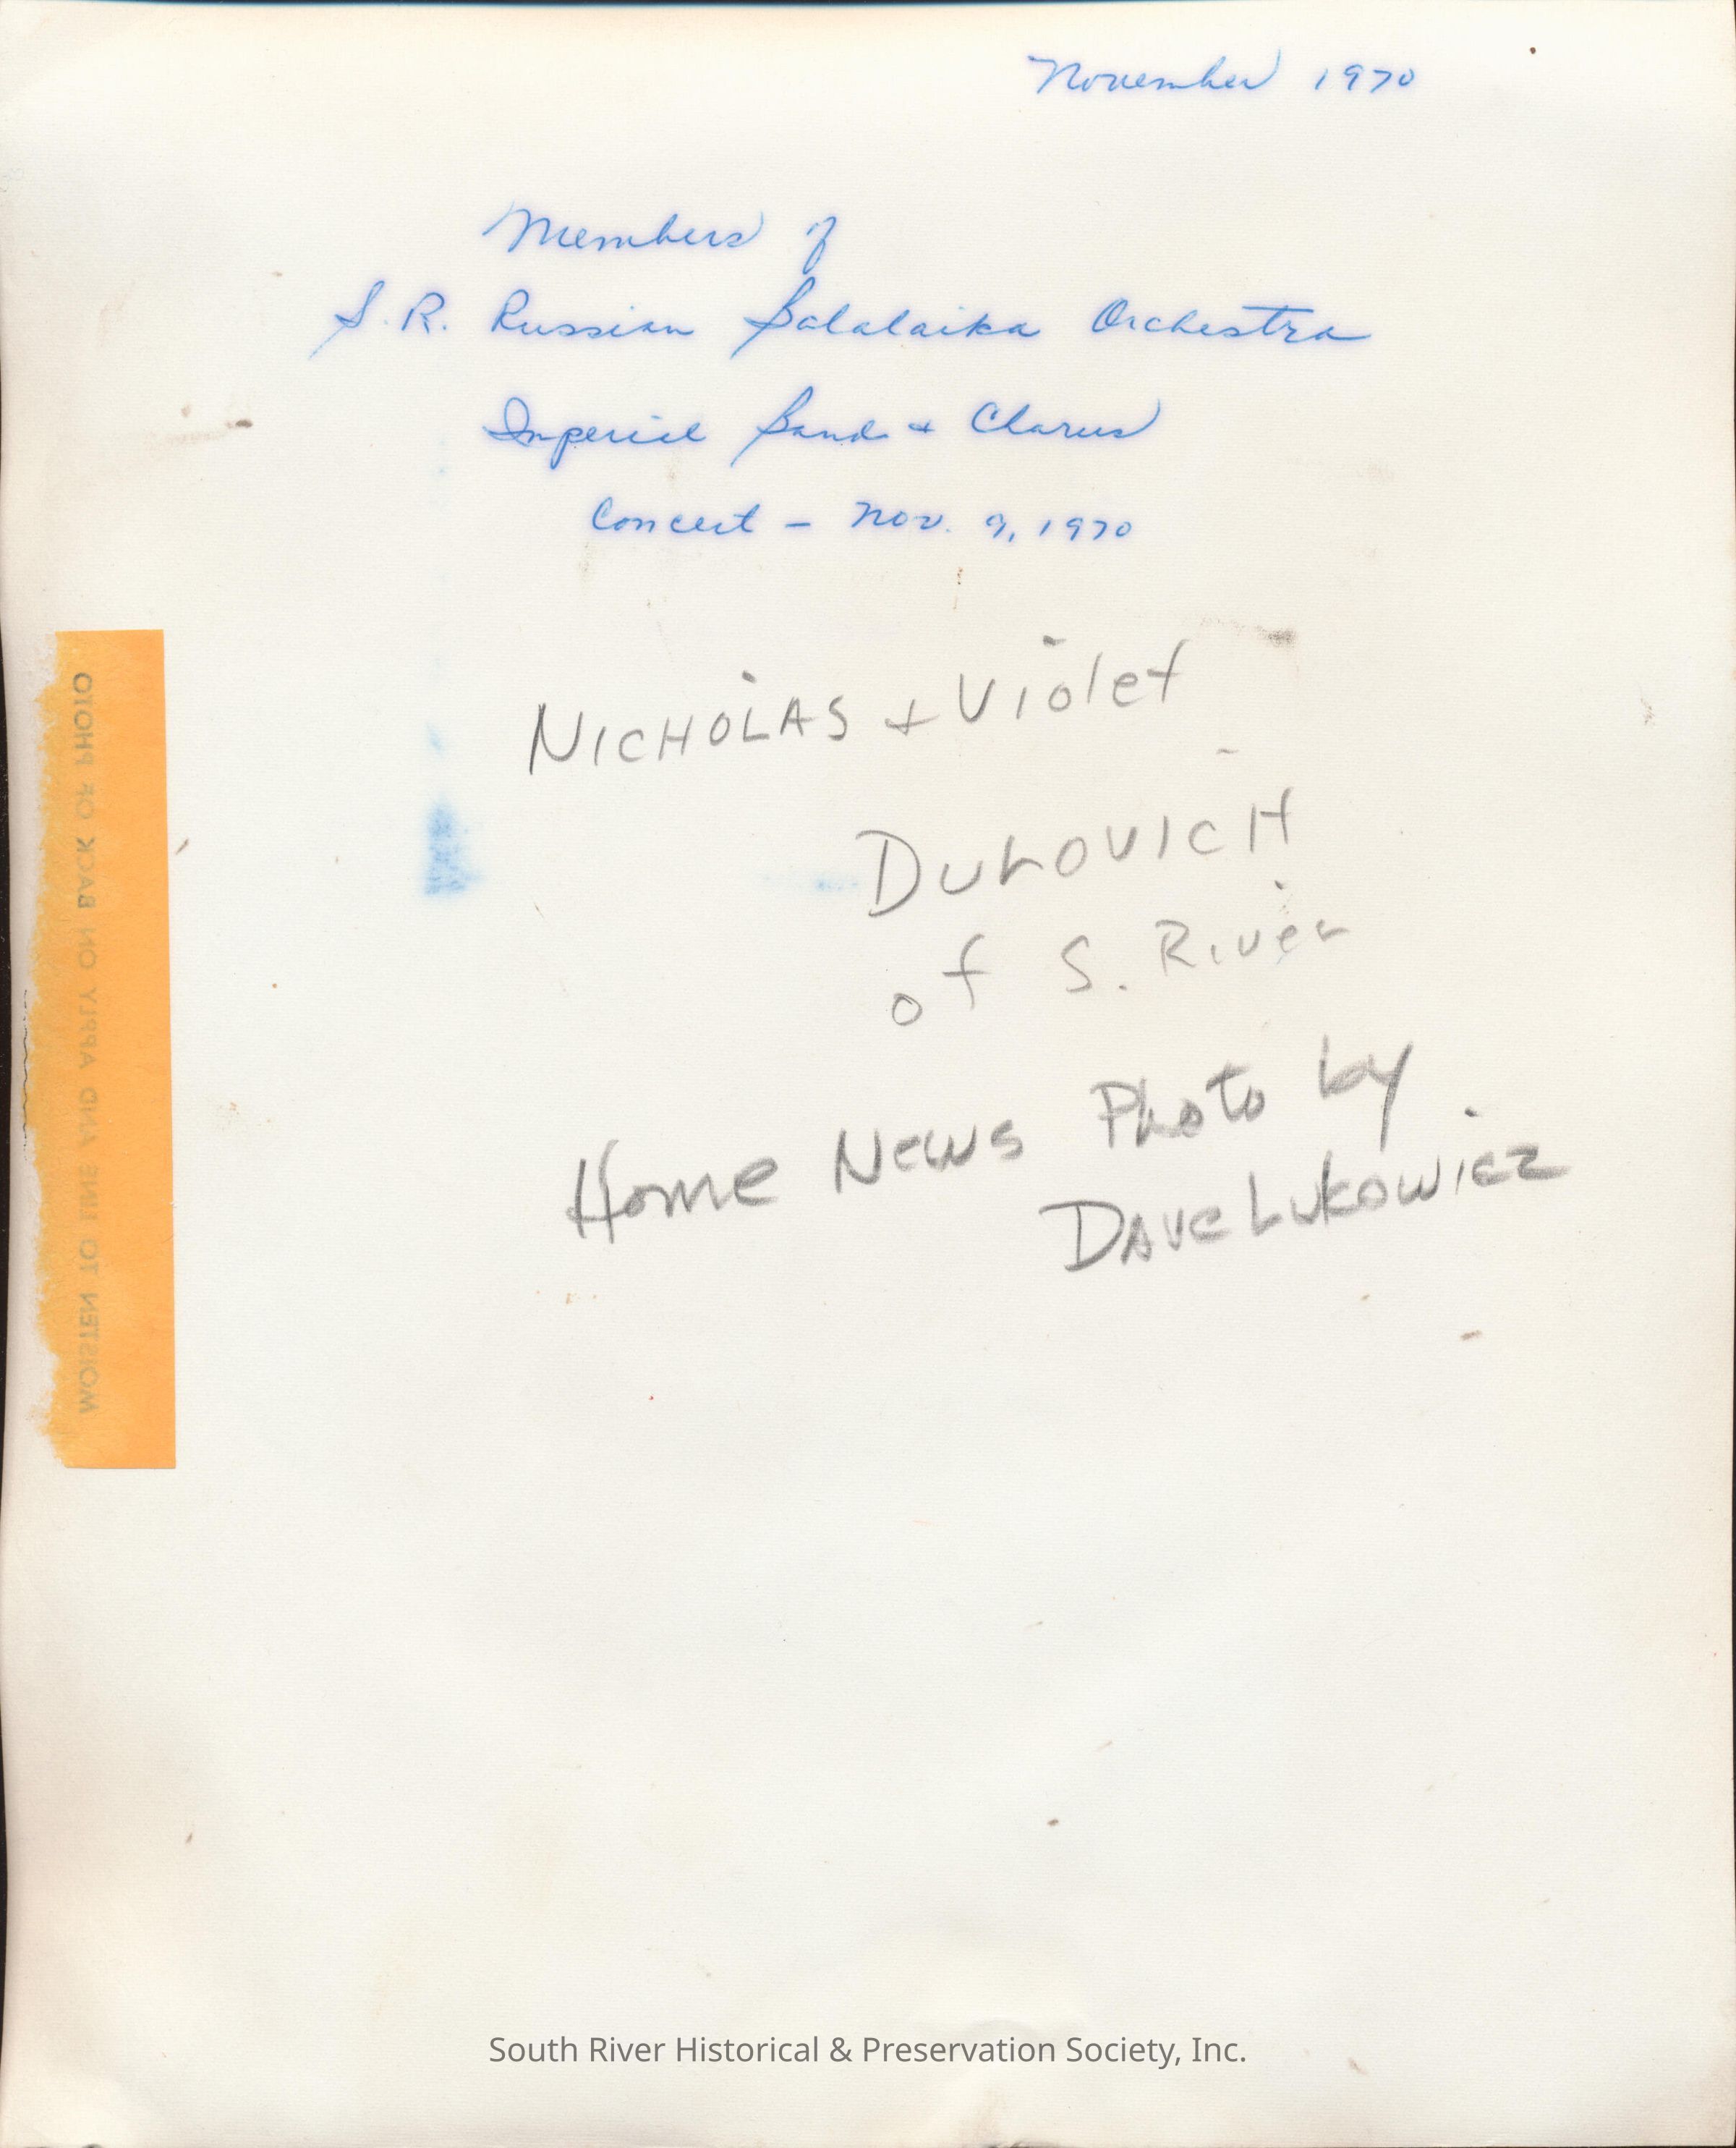 November 1970
Members of
S.R. Russian Balalaika Orchestra
Imperial Band + Chorus
Concert - Nov. 9, 1970
NICHOLAS + Violet
DuRoVICH
of S. River
Home News Photo by
DAVE LUKOWICZ
MOISTEN TO LINE AND APPLY ON BACK OF PHOTO
South River Historical & Preservation Society, Inc.